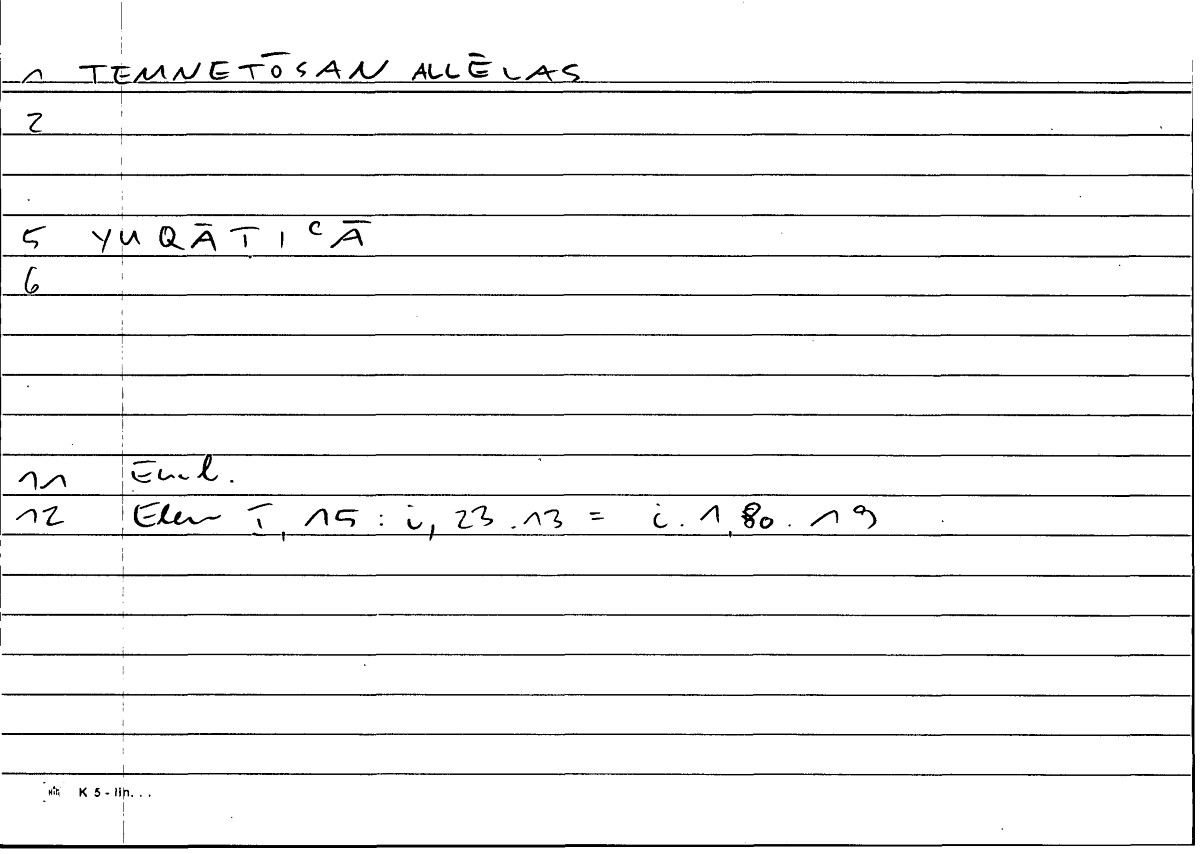 1 TEMNETŌSAN ALLĒLAS
2
5 YUQĀṬIᶜĀ
6
11 Eucl.
12 Elem I, 15 : i, 23.13 = i.1,80.19
K 5 - lin...